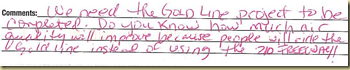 Comments: We need the Gold Line project to be
completed. Do you know how much air
quality will improve because people will ride the
Gold line instead of using the 210 FREEWAY!!